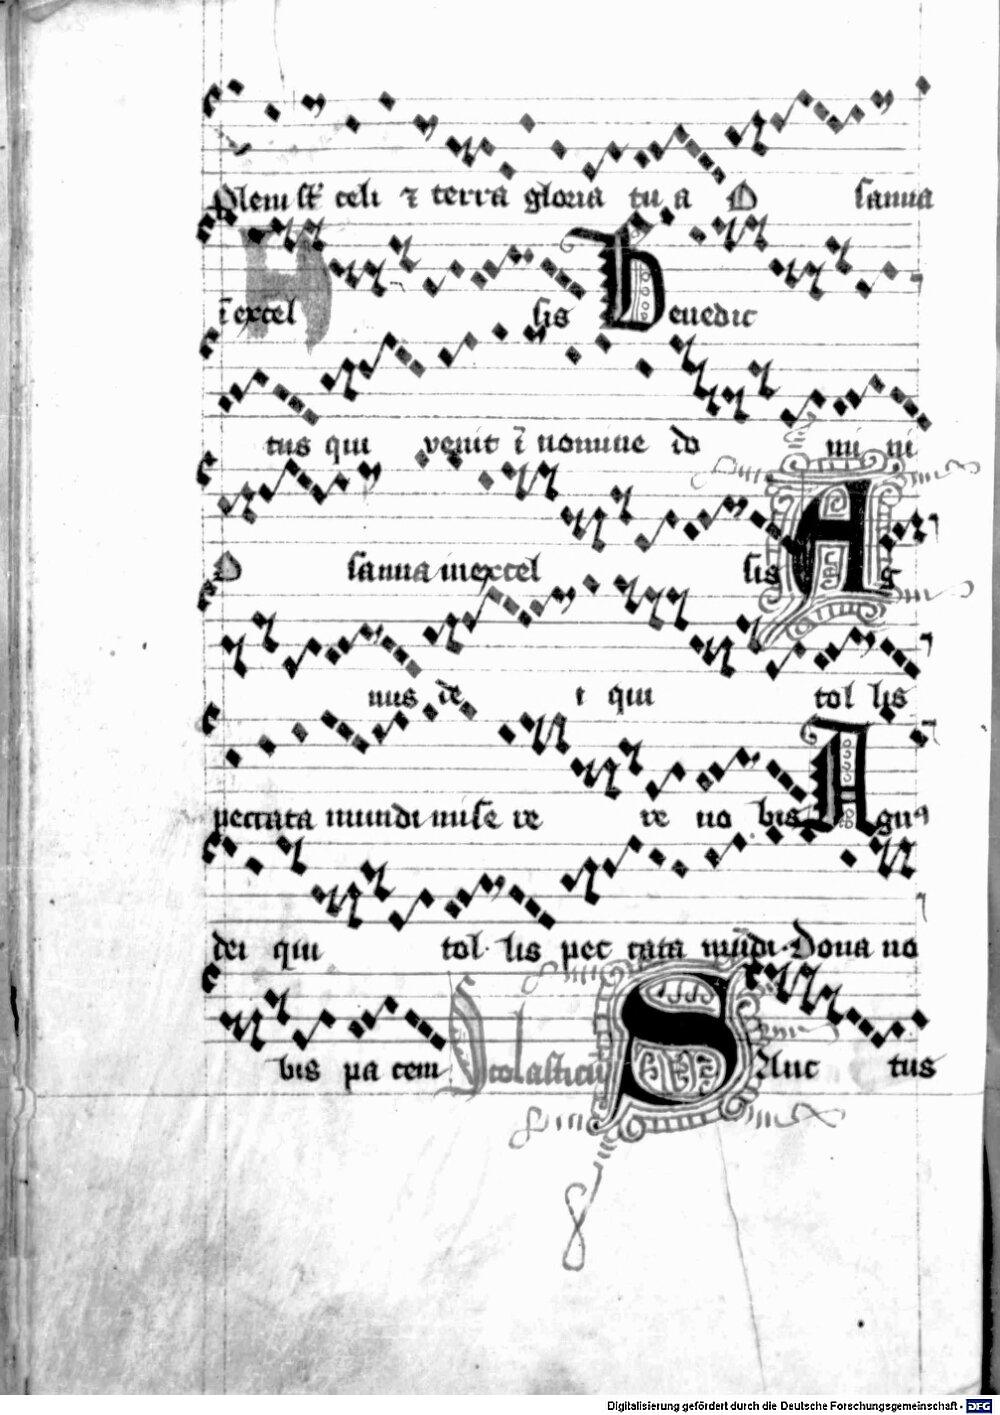 Pleni st̄ celi ⁊ terra gloria tu a O sanna
ī excel sis Benedic
tus qui venit ī nomine do mi ni
O sanna in excel sis A g
nus de i qui tol lis
peccata mundi mise re re no bis A gnꝰ
dei qui tol lis pec cata mūdi Dona no
bis pa cem Scolasticū Sanc tus
Digitalisierung gefördert durch die Deutsche Forschungsgemeinschaft - DFG